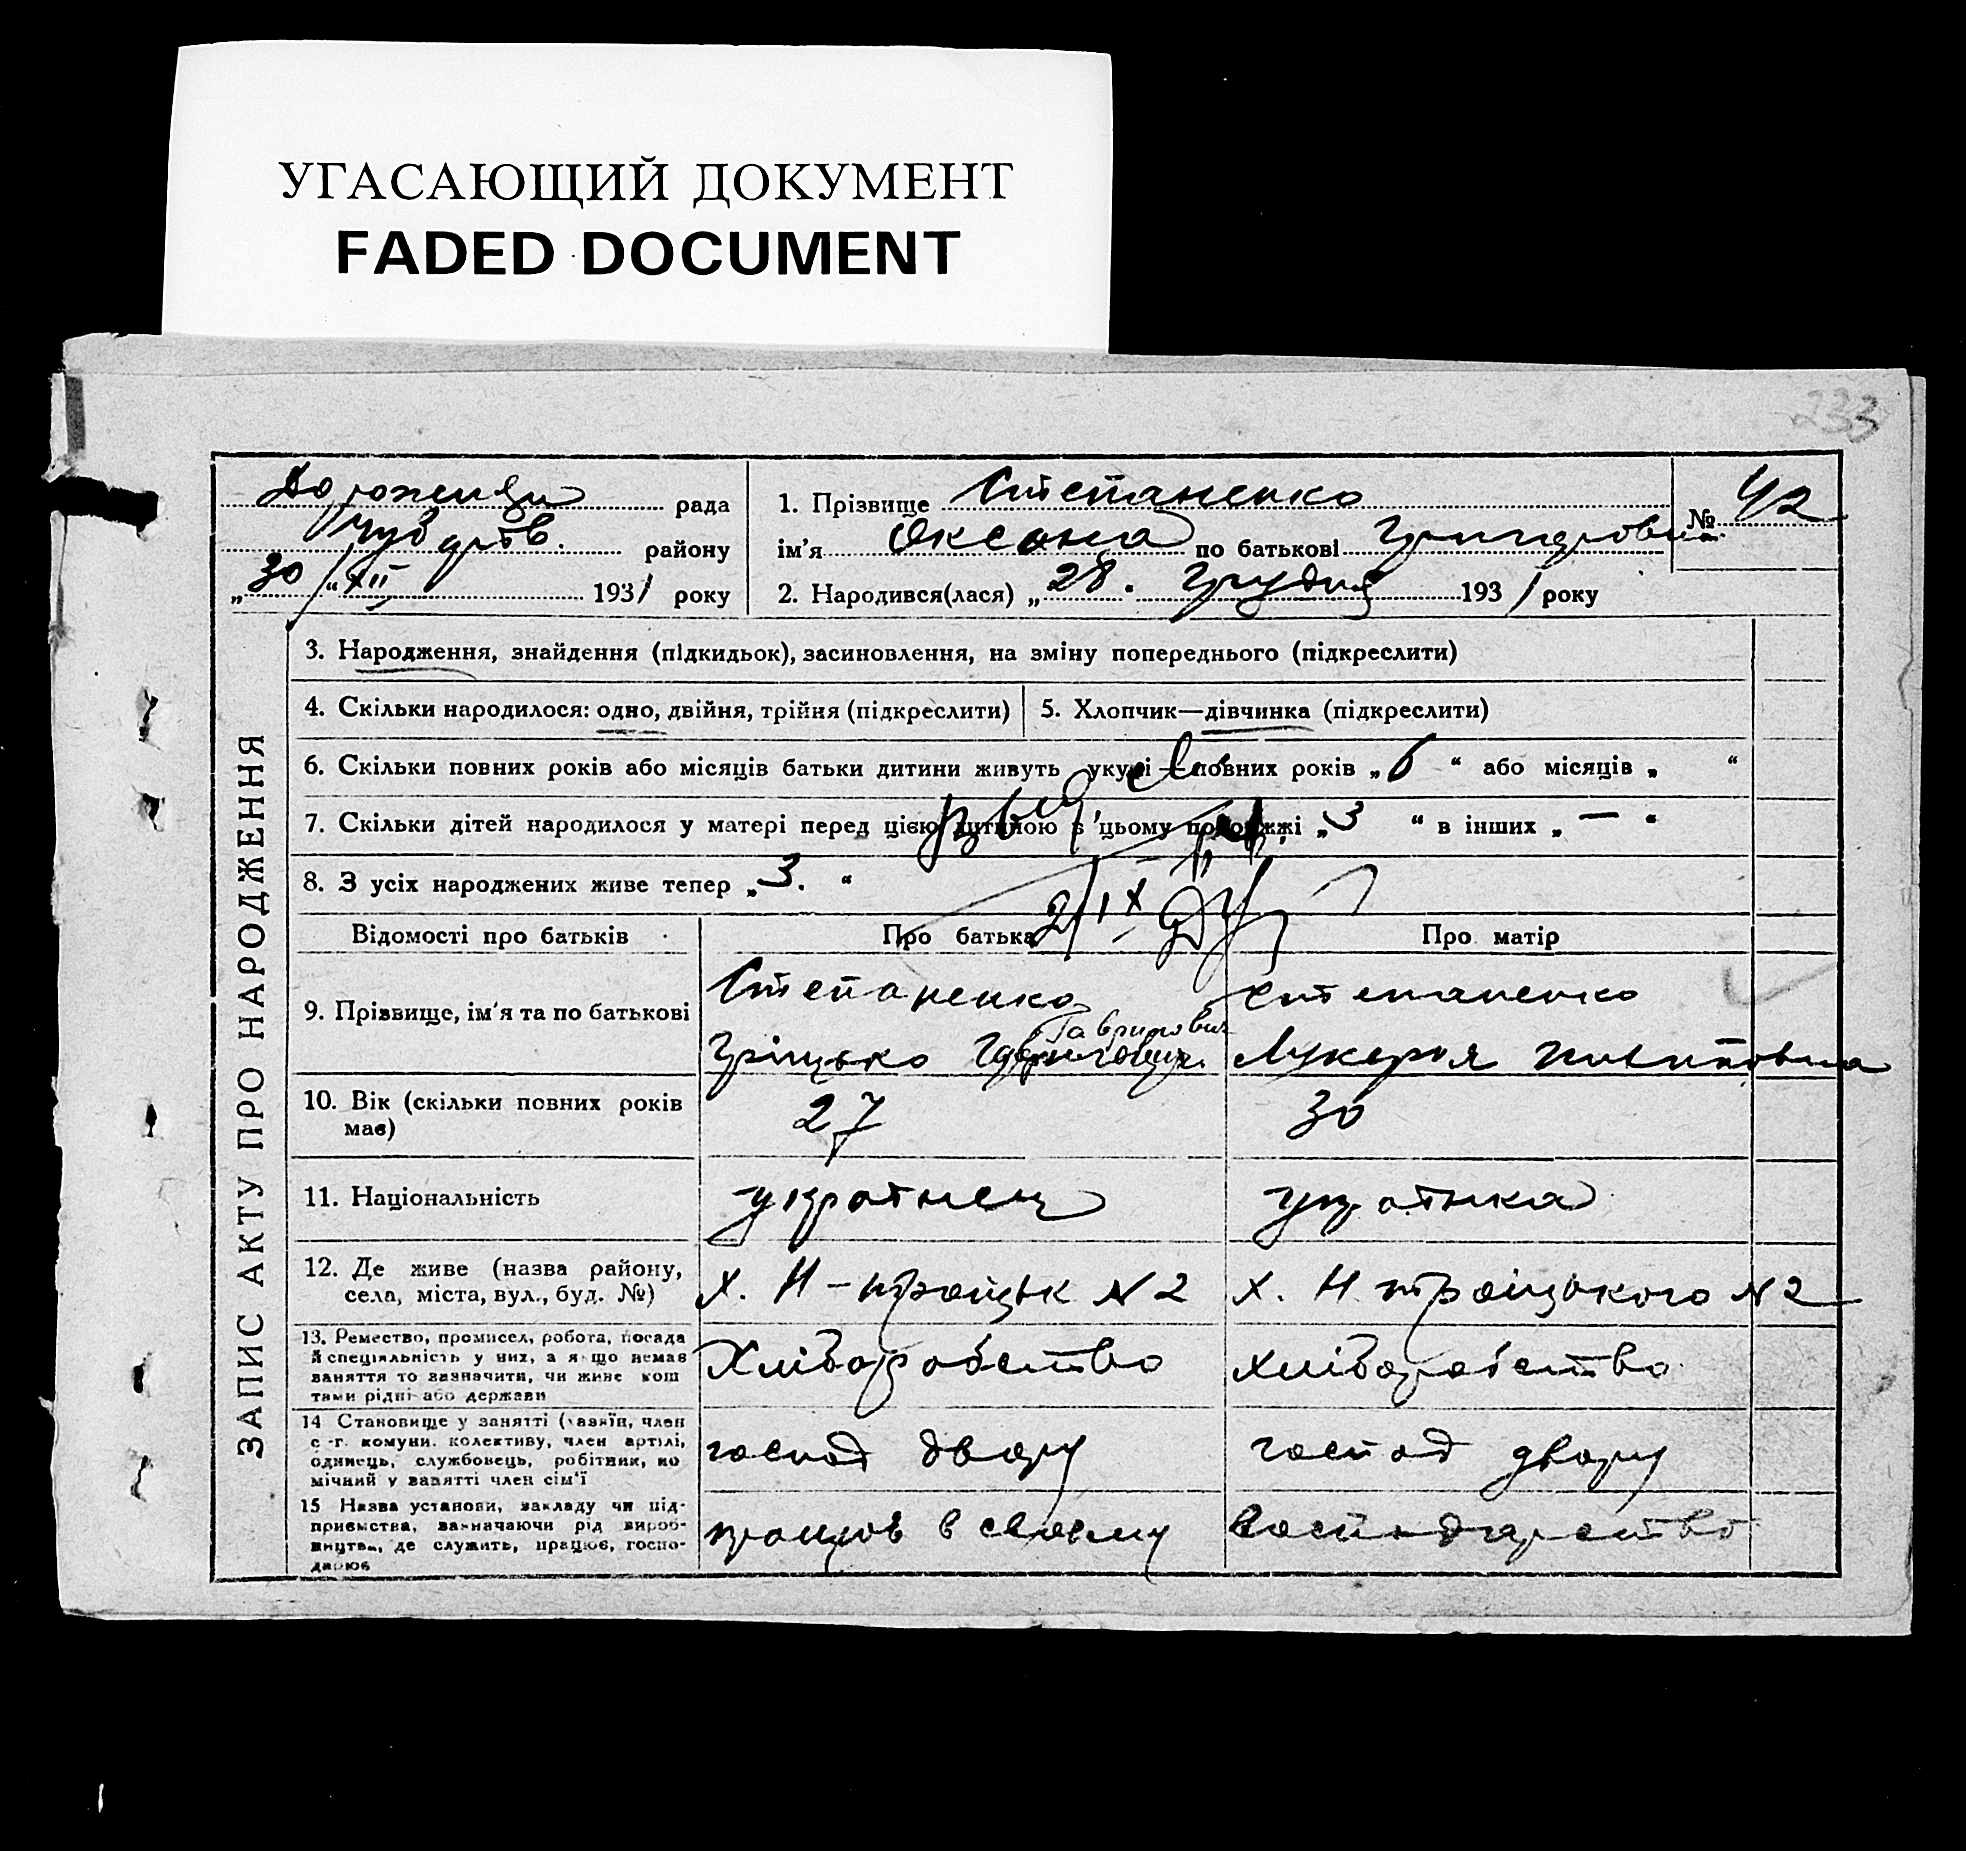 УГАСАЮЩИЙ ДОКУМЕНТ
FADED DOCUMENT
233
ЗАПИС АКТУ ПРО НАРОДЖЕННЯ
рада
району
„30“ XII 1931 року
1. Прізвище Степаненко
ім'я Оксана по батькові
№ 42
2. Народився(лася) „28. Грудня 1931 року
3. Народження, знайдення (підкидьок), засиновлення, на зміну попереднього (підкреслити)
4. Скільки народилося: одно, двійня, трійня (підкреслити)
5. Хлопчик—дівчинка (підкреслити)
6. Скільки повних років або місяців батьки дитини живуть укупі — повних років „6“ або місяців „ “
7. Скільки дітей народилося у матері перед цією дитиною в цьому подружжі „3“ в інших „—“
8. З усіх народжених живе тепер „3.“
Відомості про батьків
Про батька
Про матір
9. Прізвище, ім'я та по батькові
Степаненко
Гаврилович
Грицько
Степаненко
Лукерья
10. Вік (скільки повних років має)
27
30
11. Національність
украінец
украінка
12. Де живе (назва району,
села, міста, вул., буд. №)
х. Н-троицьк N 2
х. Н троицького N 2
13. Ремество, промисел, робота, посада
й спеціяльність у них, а якщо немає
заняття то зазначити, чи живе кош
тами рідні або держави
Хліборобство
хліборобство
14 Становище у занятті (хазяїн, член
с.-г. комуни, колективу, член артілі,
одинець, службовець, робітник, по
мічний у занятті член сім'ї
господ двору
господ двору
15 Назва установи, закладу чи під-
приємства, зазначаючи рід вироб-
ництва, де служить, працює, госпо-
дарює
працює в своєму
господарство